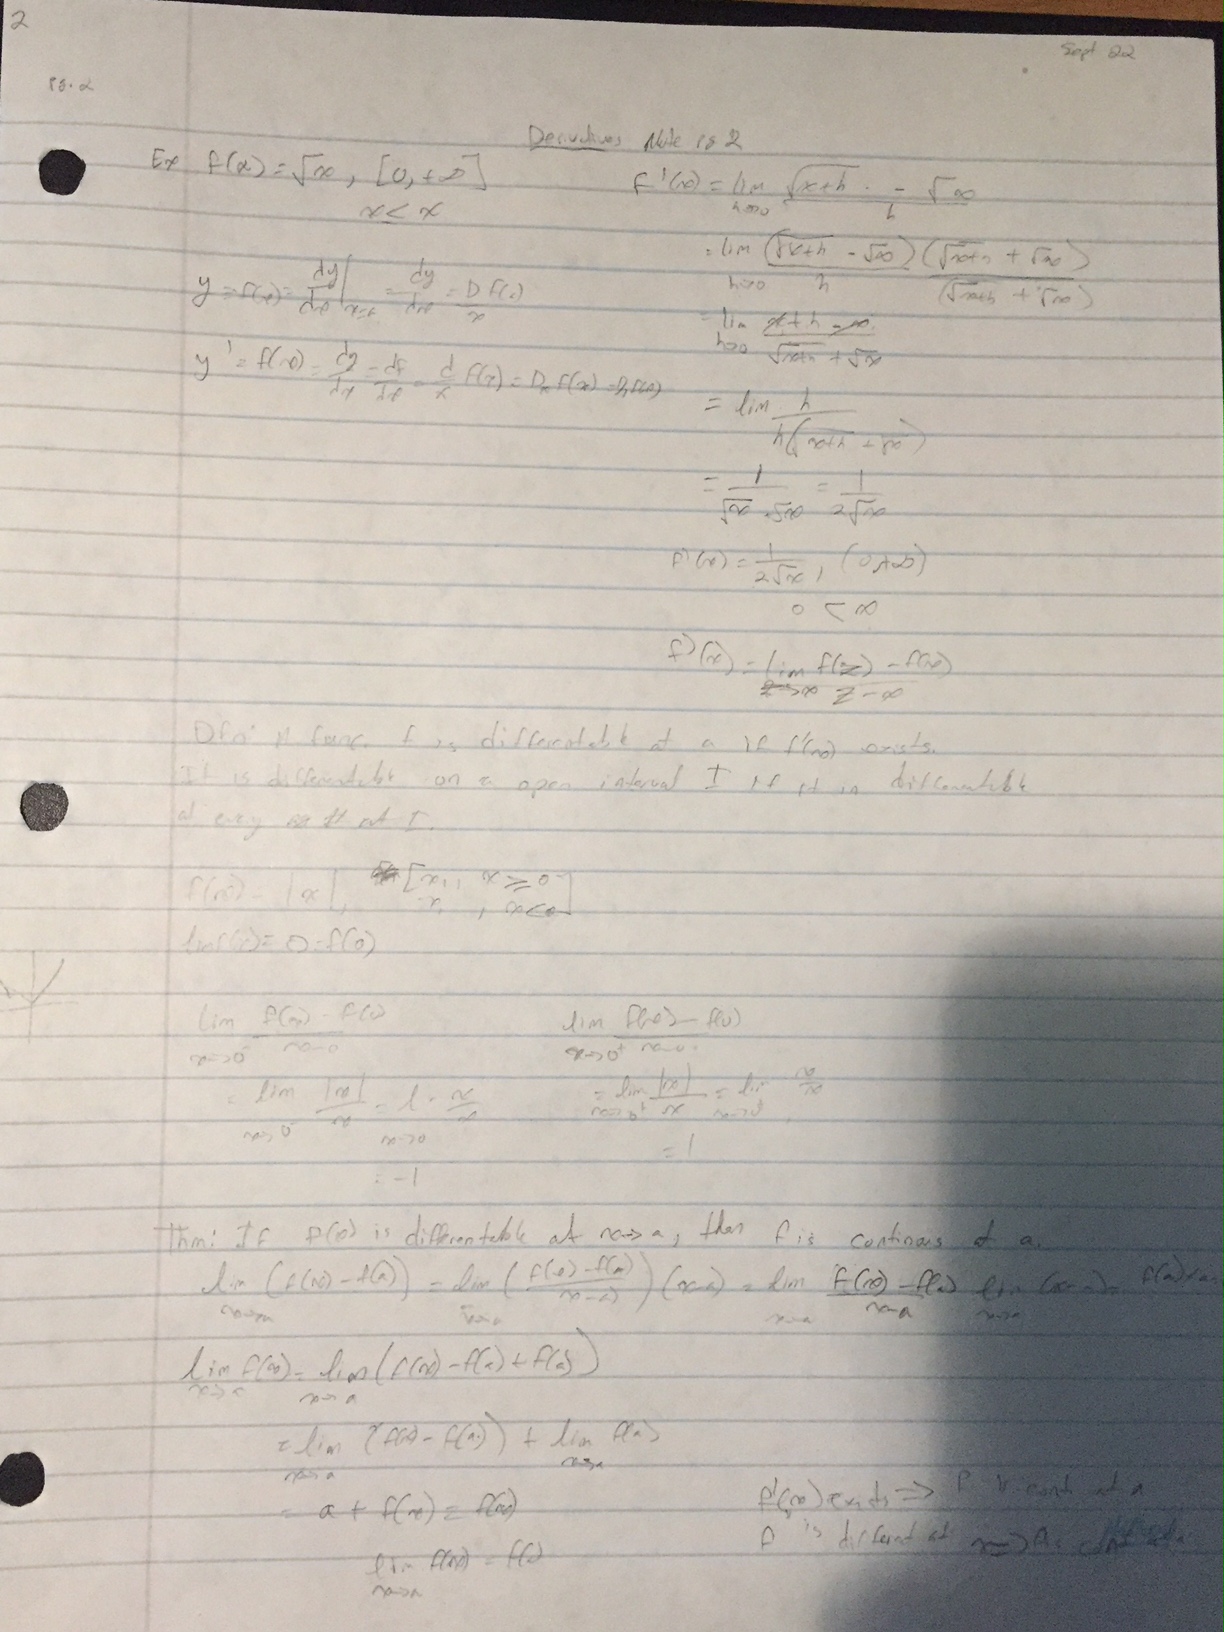 2
Sept 22
pg. 2
Derivatives Note pg 2
Ex f(x) = √x, [0, +∞]
x < x
y = f(x) = dy/dx |x=a = dy/dx = D f(x)/x
y' = f(x) = dy/dx = df/dx = d/x f(x) = Dx f(x) =
f'(x) = lim h→0 √x+h - √x / h
= lim h→0 (√x+h - √x)/h (√x+h + √x)/(√x+h + √x)
= lim h→0 x+h-x / √x+h + √x
= lim h / h(√x+h + √x)
= 1/√x + √x = 1/2√x
f'(x) = 1/2√x, (0, +∞)
0 < x
f'(x) = lim z→x f(z) - f(x) / z - x
Dfn: A func. f is differentable at a if f'(x) exists.
It is differentable on a open interval I if it is differentable
at every # at I.
f(x) = |x|, [x, x ≥ 0
-x, x<0]
lim f(x) = 0 = f(0)
lim x→0⁻ f(x) - f(0) / x-0
= lim x→0⁻ |x|/x = l - x/x x→0
= -1
lim x→0⁺ f(x) - f(0) / x-0
= lim x→0⁺ |x|/x = lim x→0⁺ x/x
= 1
Thm: If f(x) is differentable at x→a, then f is continous at a.
lim x→a (f(x) - f(a)) = lim x→a (f(x) - f(a) / x-a) (x-a) = lim x→a f(x) - f(a) / x-a lim x→a (x-a) = f(a)
lim x→a f(x) = lim x→a (f(x) - f(a) + f(a))
= lim x→a (f(x) - f(a)) + lim x→a f(a)
= a + f(x) = f(x)
lim x→a f(x) = f(a)
f'(x) exists ⇒ f is cont at a
f is different at x ⇒ f is cont at a